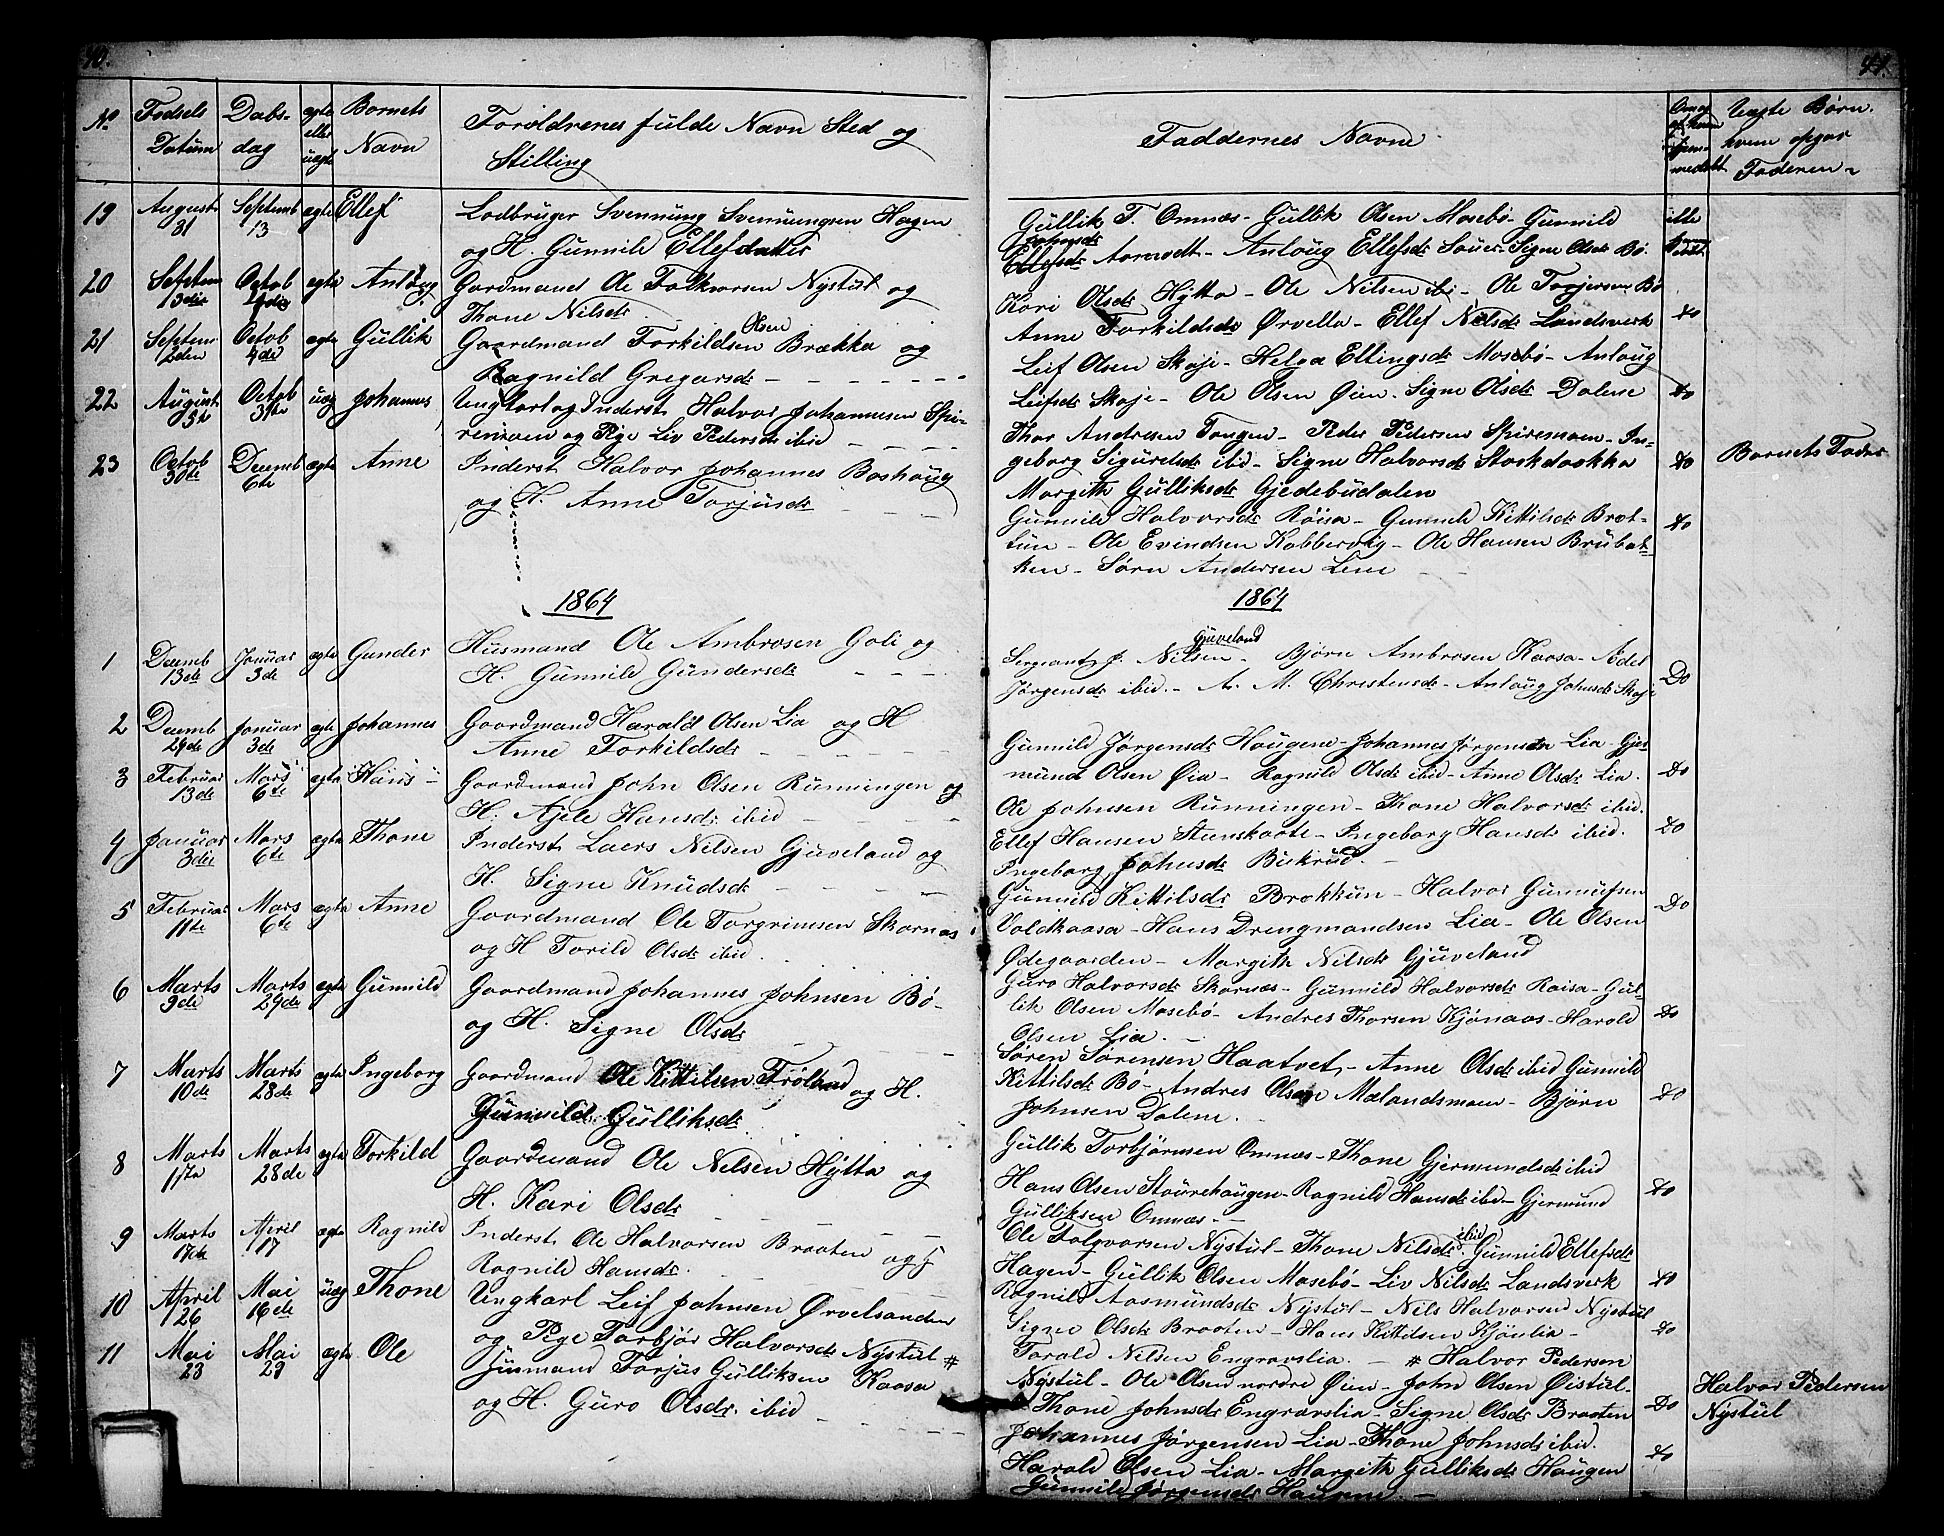 40.
No Fødsels Daabs- ægte Barnets Forældrenes fulde Navn Sted og
Datum dag eller uægte Navn Stilling
19 August 31 Septemb 13 ægte Ellef Lodbruger Svennung Svennungsen Hagen
og H. Gunnild Ellefdatter
20 Septem 13de Octob 4de ægte Anlaug Gardmand Ole Folkvarsen Nystul og
Thone Nilsdr.
21 Septem 2den Octob 4de ægte Gullik Gaardmand Torkildsen Olsen Brækka og
Ragnild Gregarsdr
22 August Octob 31te uæg Johannes Ungkarl og Inderst Halvor Johannesen Spi-
remoen og Pige Liv Pedersdr ibid
23 Octob 30te Decemb 6te ægte Anne Inderst Halvor Johannes Boshaug
og H. Anne Torjusdr
1864
1 Decemb 13de Januar 3de ægte Gunder Husmand Ole Ambrosen Goli og
H. Gunnild Gundersdr
2 Decemb 29de Januar 3de ægte Johannes Gaardmand Harald Olsen Lia og H
Anne Torkildsdr
3 Februar 13de Mars 6te ægte Hans Gaardmand John Olsen Runningen og
H. Ajele Hansdr ibid
4 Januar 3die Mars 6te ægte Thone Inderst Laers Nilsen Gjuveland og
H. Signe Knudsdr
5 Februar 11te Mars 6te ægte Anne Gaardmand Ole Torgrimsen Skornæs
og H Torild Olsdr ibid
6 Marts 9de Marts 29de ægte Gunnild Gaardmand Johannes Johnsen Bø-
og H. Signe Olsdr
7 Marts 10de Marts 28de ægte Ingeborg Gaardmand Ole Kittilsen Trøland og H.
Gunnild Gulliksdr
8 Marts 17de Marts 28de ægte Torkild Gaardmand Ole Nilsen Hytta og
H. Kari Olsdr
9 Marts 17de April 17 ægte Ragnild Inderst Ole Halvorsen Braaten og
Ragnild Hansdr.
10 April 26 Mai 16de uæg Thone Ungkarl Leif Johnsen Ørvelsanden
og Pige Torbjør Halvorsdr Nystul #
11 Mai 23 Mai 29 ægte Ole Husmand Torjus Gulliksen Kaasa
og H. Guro Olsdr. ibid
41.
Faddernes Navne
Uægte Børn.
hvem opgar
Faderen
Gullik T. Omnæs- Gullik Olsen Mosebø- Gunnild ikke
Johnsdr
Ellefsdr Aamodt- Anlaug Ellefsdr Sauer- Signe Olsdr Bø.
Kari Olsdr Hytta- Ole Nilsen ibi- Ole Torjersen Bø
Anne Torkildsdr Ørvella- Ellef Nilsdr Landsverk Do
Leif Olsen Skoje- Helga Ellingsdr Mosebø- Anlaug
Leifsdr Skoje- Ole Olsen Øien. Signe Olsdr Dalene Do
Thor Andresen Tangen- Peder Pedersen Spiremoen- In-
geborg Sigurdsdr ibid- Signe Halvorsdr Stokdaakka Do Barnets Fader
Margith Gulliksdr Gjedebudalen
Gunnild Halvorsdr Røisa- Gunnild Kittilsdr Brot- Do
tun- Ole Evindsen Kobbervig- Ole Hansen Brubak-
ken- Sørn Andersen Lene
1864
Gjuveland
Sergeant J. Nilsen- Bjørn Ambrosen Kaasa- Aadel
Jørgensdr ibid.- A. M. Christensdr- Anlaug Johnsdr Skoje Do
Gunnild Jørgensdr Haugene- Johannes Jørgensen Lia- Gjer
mund Olsen Øia- Ragnild Olsdr ibid- Anne Olsdr Lia. Do
Ole Johnsen Runningen- Thone Halvorsdr ibid.
Ellef Hansen Stenskaate- Ingeborg Hansdr ibid. Do
Ingeborg Johnsdr Bukrud.-
Gunnild Kittilsdr Brokkun- Halvor Gunnufsen
Voldkaasa- Hans Drengmandsen Lia- Ole Olsen Do
Ødegaarden- Margith Nilsdr Gjuveland
Guro Halvorsdr Skornæs- Gunnild Halvorsdr Raisa- Gul-
lik Olsen Mosebø- Andres Thorsen Kjønaas- Harald Do
Olsen Lia.-
Søren Sørensen Haatvet- Anne Olsdr ibid Gunnild
Kittilsdr Bø- Andres Olsen Mælandsmoen- Bjørn Do
Johnsen Dalene.
Gullik Torbjørnsen Omnæs- Thone Gjermundsdr ibid
Hans Olsen Staurehaugen- Ragnild Hansdr ibid- Gjermund Do
Gulliksen Omnæs.-
Ole Folqvarsen Nystul- Thone Nilsdr ibid. Gunnild Ellefsdr
Hagen- Gullik Olsen Mosebø- Liv Nilsdr Landsverk Do
Ragnild Aasmundsdr Nystul- Nils Halvorsen Nystul
Signe Olsdr Braaten- Hans Kittilsen Kjønlia- Do
Torald Nilsen Engravslia.- # Halvor Pedersen
Nystul- Ole Olsen nordre Øien- John Olsen Øistul- Halvor Pedersen
Thone Johnsdr Engravslia- Signe Olsdr Braaten Do Nystul
Johannes Jørgensen Lia- Thone Johnsdr ibid.
Harald Olsen Lia- Margith Gulliksdr Haugen Do
Gunnild Jørgensdr Haugene.-